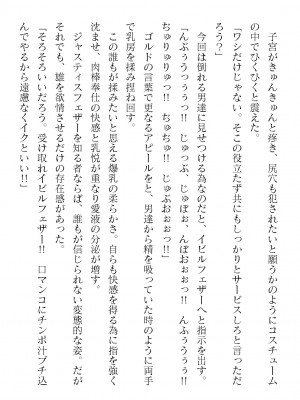 子宮がきゅんきゅんと疼き、尻穴も犯されたいと願うかのようにコスチューム
の中でひくひくと震えた。
「ワシだけじゃない。そこの役立たず共にもしっかりとサービスしろと言っただ
ろう？」
今回は倒れる男達に見せつける為なのだと、イビルフェザーへと指示を出す。
ゴルドの言葉で更なるアピールをと、男達から精を吸っていた時のように両手
で乳房を揉み捏ね回す。
この誰もが揉みたいと思える爆乳の柔らかさ。自らも快感を得る為に指を強く
沈ませ、肉棒奉仕の快感と乳悦が重なり愛液の分泌が増す。
ジャスティスフェザーを知る者ならば、誰もが信じられない変態的な姿。だが
それでも、雄を欲情させるだけの存在感があった。
「そろそろいいだろう。受け取れイビルフェザー!!　口マンコにチンポ汁ブチ込
んでやるから遠慮なくイクといい!!」